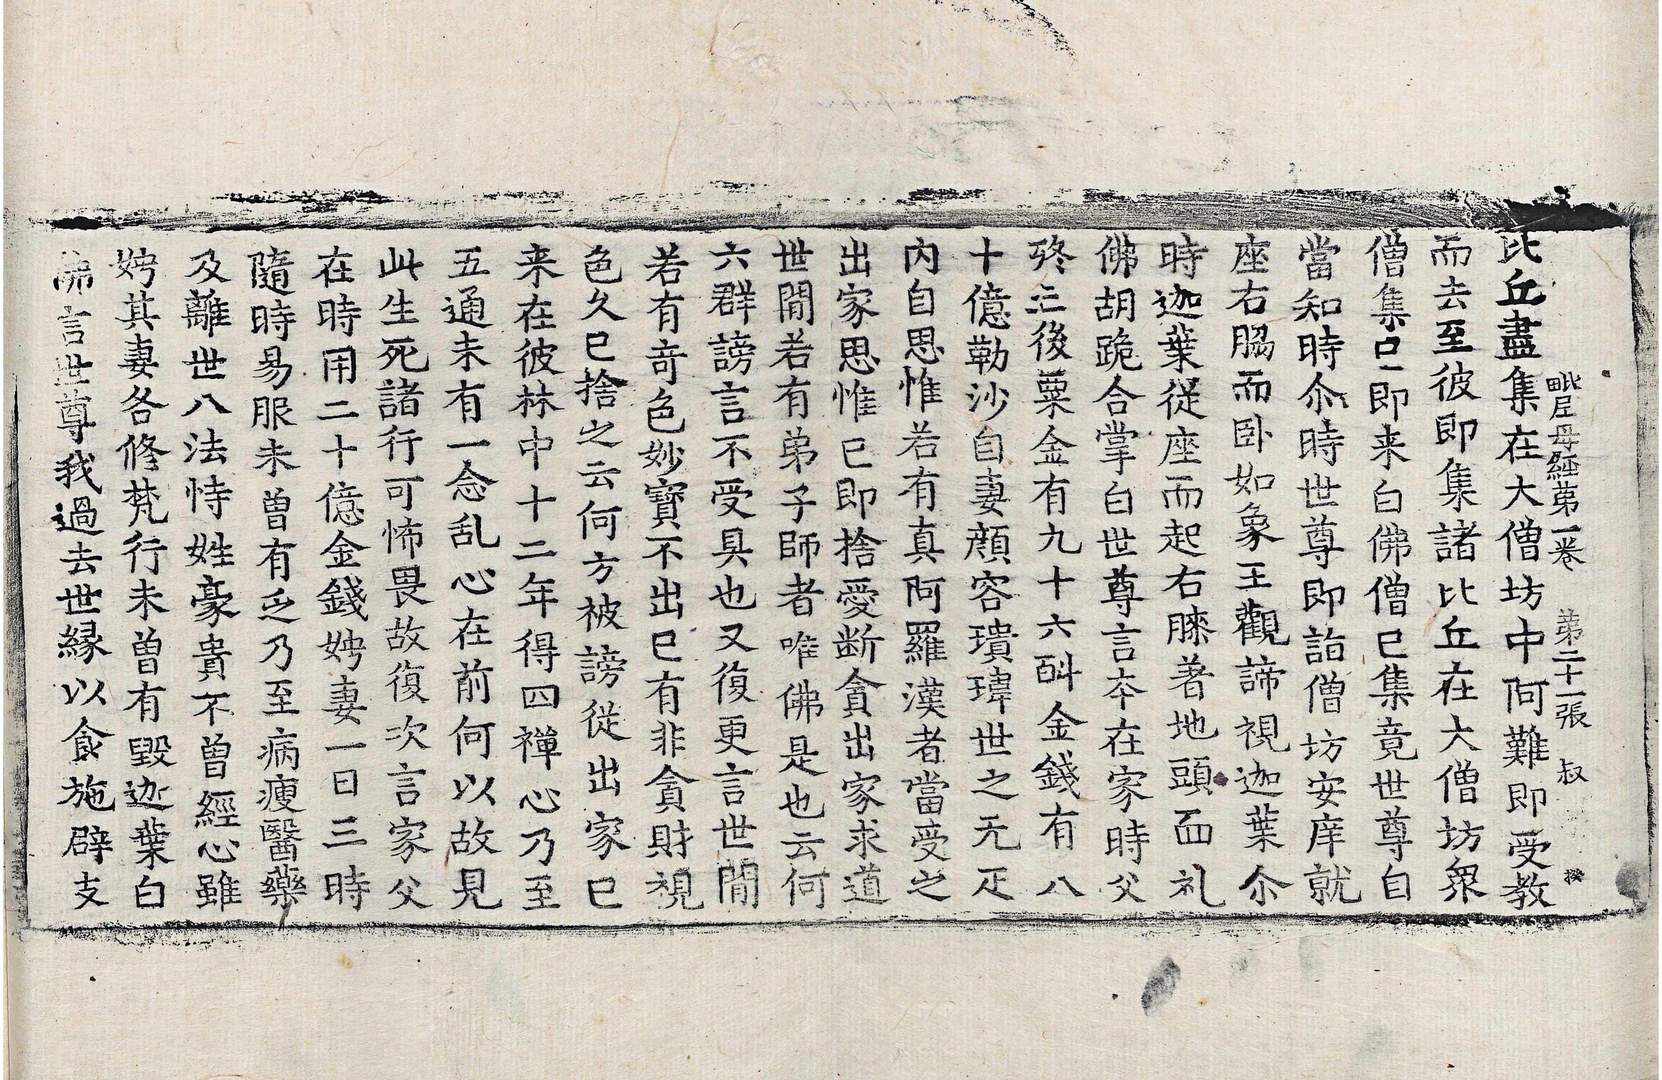 毗尼母經第一卷 第二十一張 叔
比丘盡集在大僧坊中阿難即受教
而去至彼即集諸比丘在大僧坊衆
僧集已即来白佛僧已集竟世尊自
當知時尒時世尊即詣僧坊安庠就
座右脇而卧如象王觀諦視迦葉尒
時迦葉從座而起右膝著地頭面礼
佛胡跪合掌白世尊言夲在家時父
終亡後粟金有九十六㪷金錢有八
十億勒沙自妻顔容瓌瑋世之无疋
内自思惟若有真阿羅漢者當受之
出家思惟已即捨愛断貪出家求道
世間若有弟子師者唯佛是也云何
六群謗言不受具也又復更言世間
若有奇色妙寶不出已有非貪財視
色久已捨之云何方被謗從出家已
来在彼林中十二年得四禪心乃至
五通未有一念乱心在前何以故見
此生死諸行可怖畏故復次言家父
在時用二十億金錢娉妻一日三時
隨時易服未曽有乏乃至病瘦醫藥
及離世八法恃姓豪貴不曽經心雖
娉其妻各修梵行未曽有毀迦葉白
佛言世尊我過去世縁以食施辟支